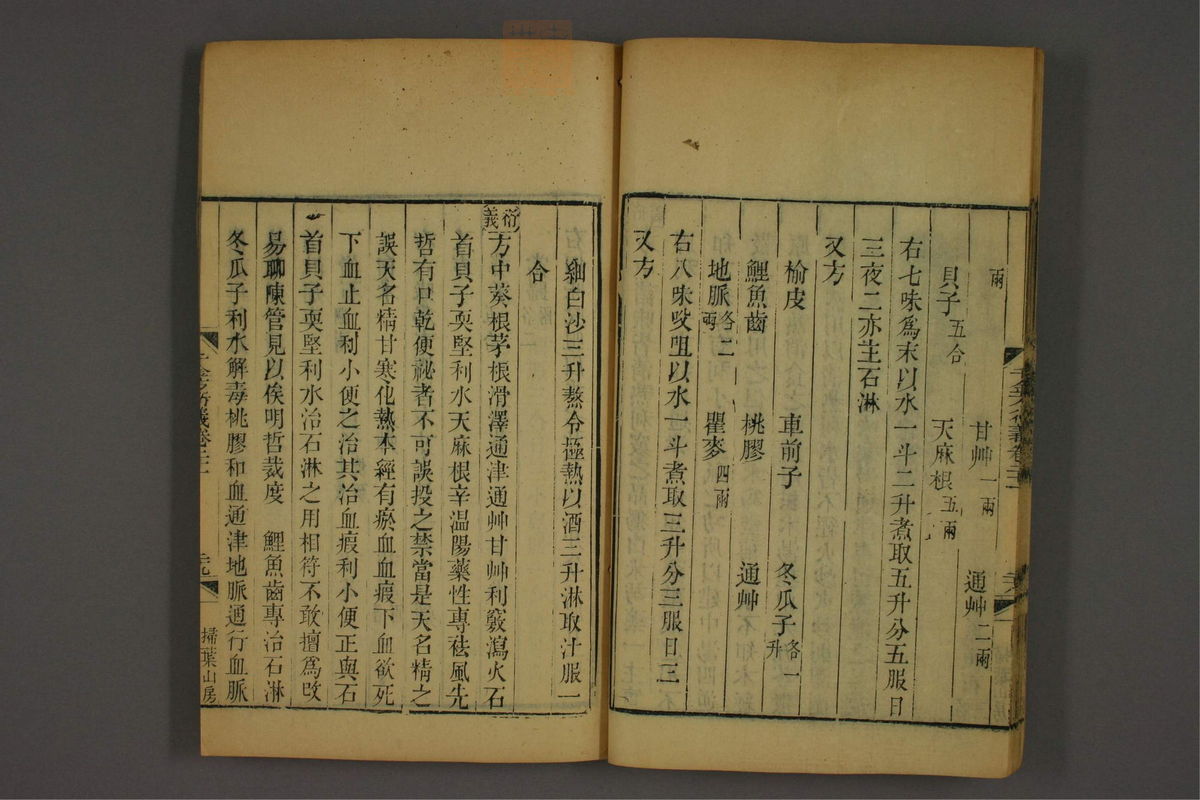 兩
甘艸一兩　通艸二兩
貝子五合　天麻根五兩
右七味爲末以水一斗二升煮取五升分五服日
三夜二亦主石淋
又方
榆皮　車前子　冬瓜子各一升
鯉魚齒　桃膠　通艸
地脈各二兩　瞿麥四兩
右八味㕮咀以水一斗煮取三升分三服日三
又方
細白沙三升熬令極熱以酒三升淋取汁服一
合
衍義
方中葵根茅根滑澤通津通艸甘艸利竅瀉火石
首貝子耎堅利水天麻根辛温陽藥性專祛風先
哲有口乾便祕者不可誤投之禁當是天名精之
誤天名精甘寒化熱本經有瘀血血瘕下血欲死
下血止血利小便之治其治血瘕利小便正與石
首貝子耎堅利水治石淋之用相符不敢擅爲改
易聊陳管見以俟明哲裁度　鯉魚齒專治石淋
冬瓜子利水解毒桃膠和血通津地脈通行血脈
千金方衍義卷二十一
三九
掃葉山房